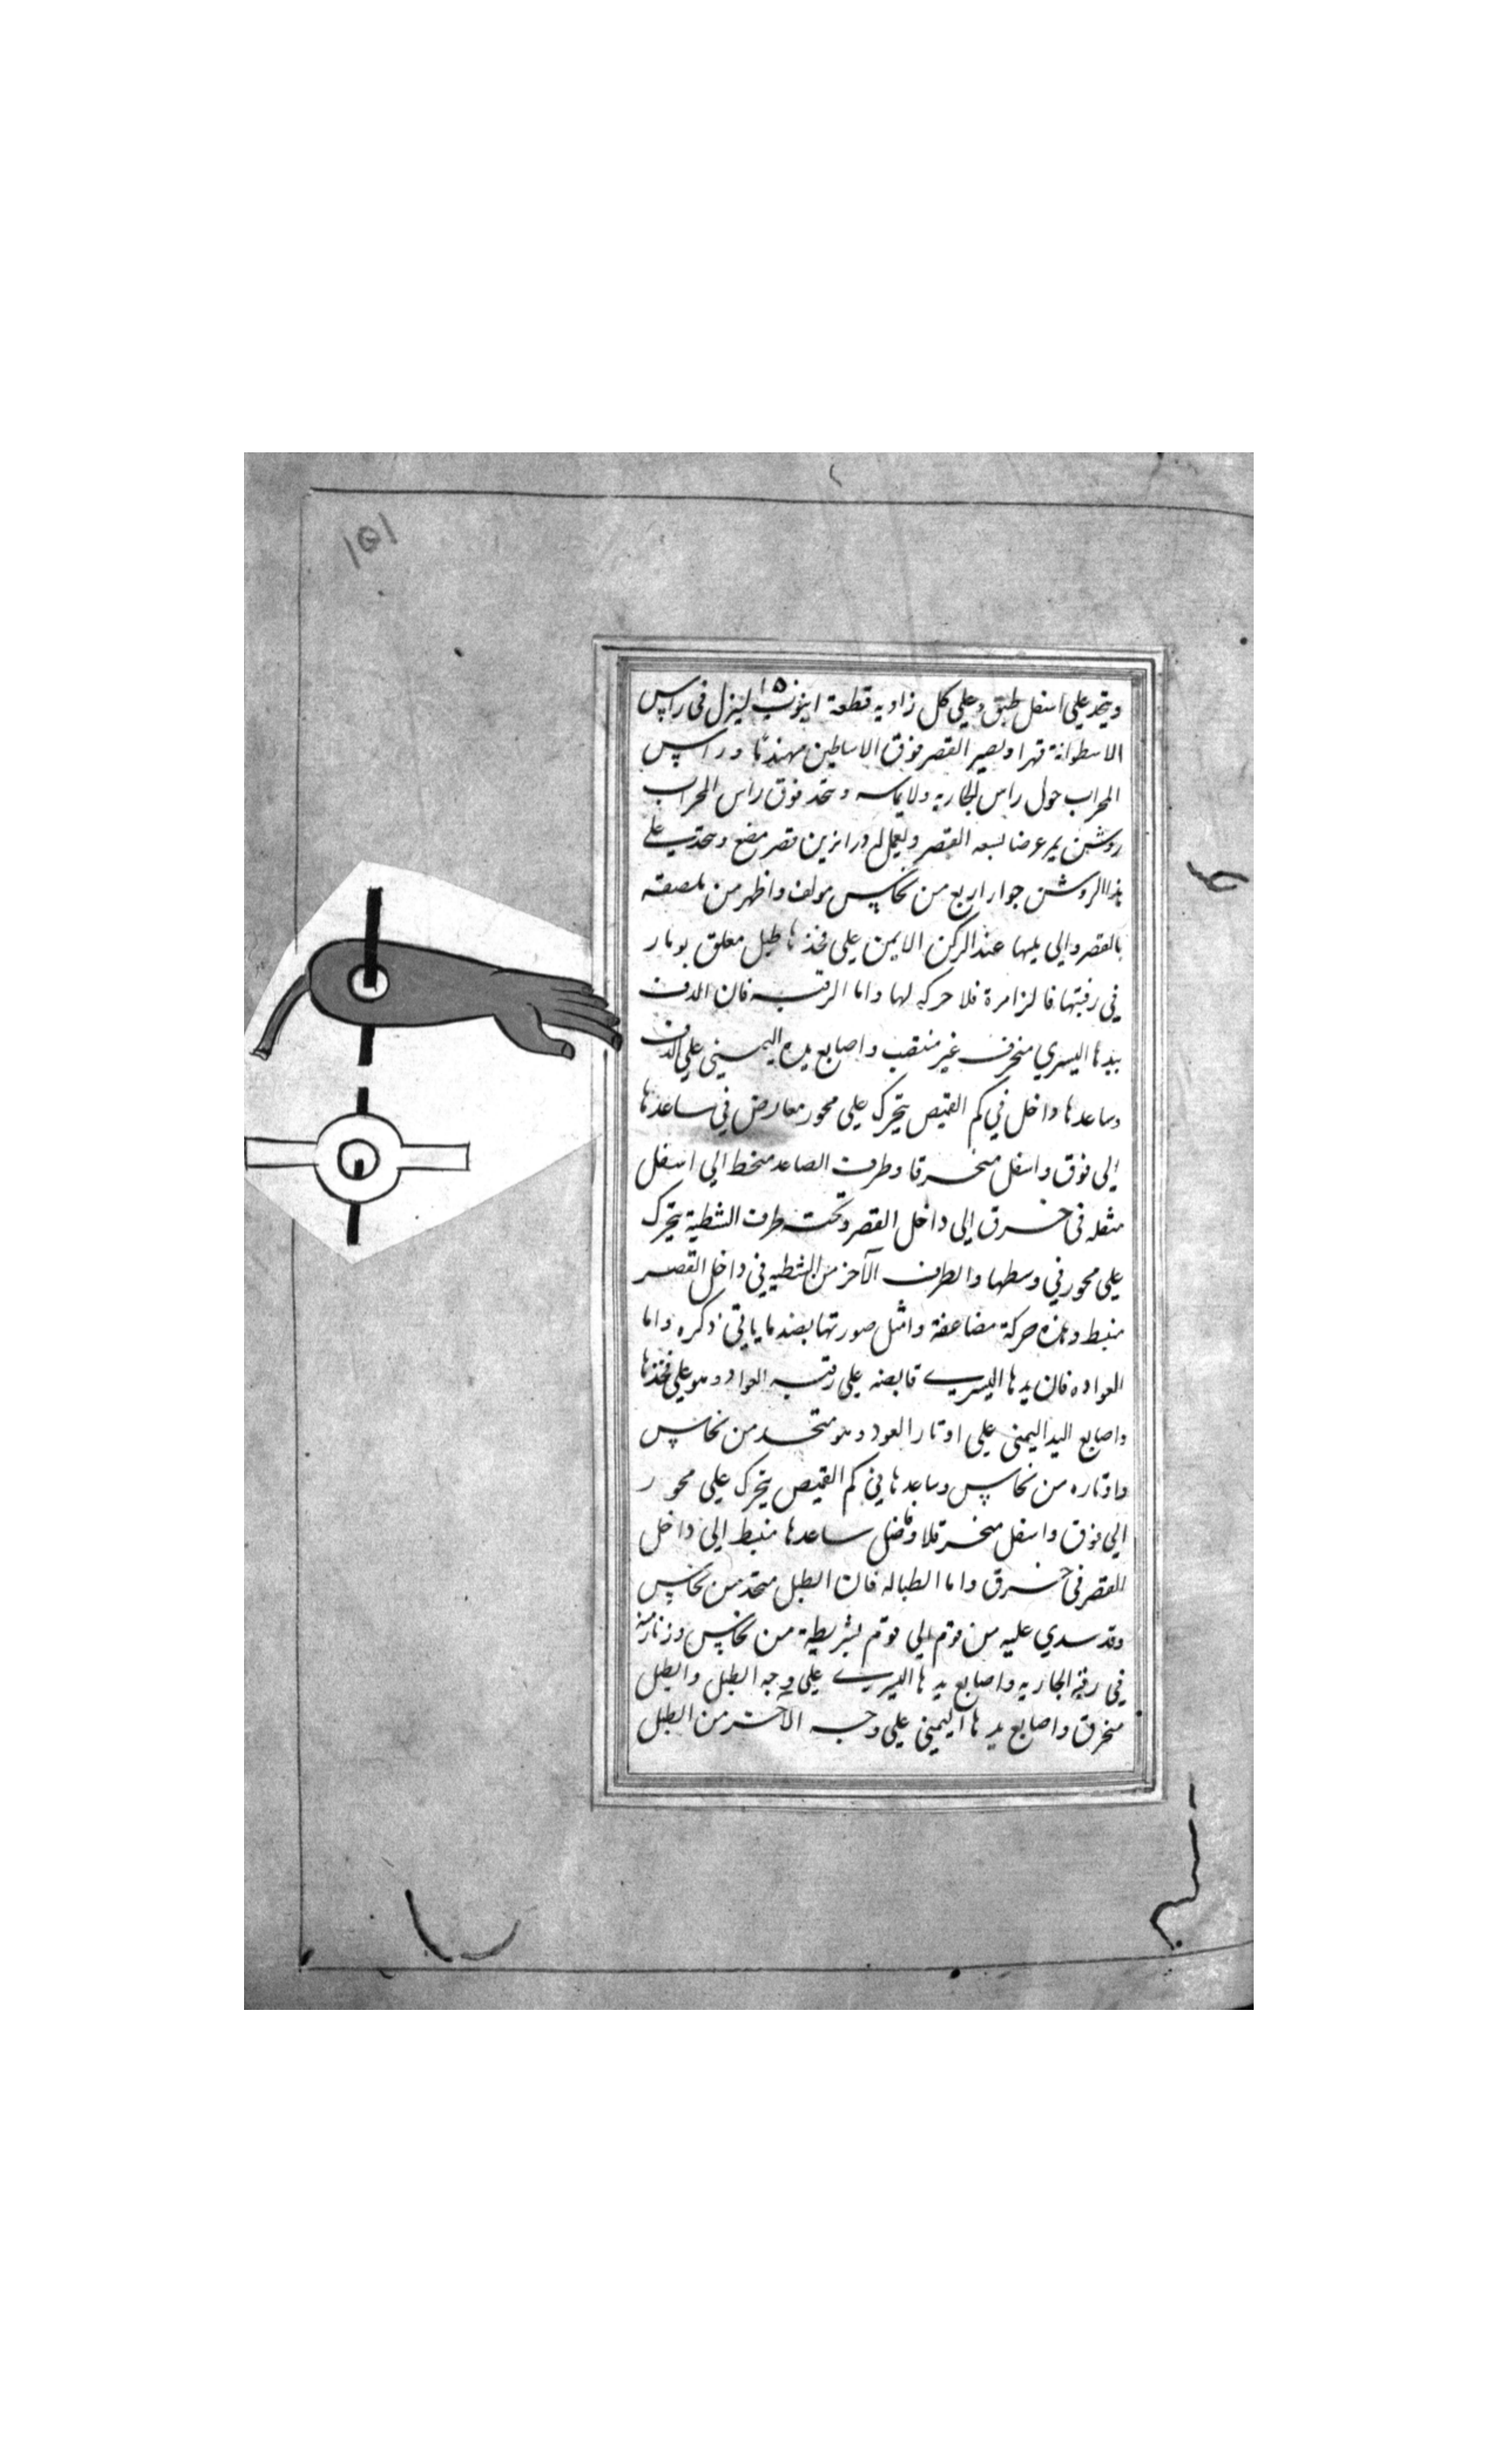 ١٥١
ويتخد على اسفل طبق وعلى كل زاويه قطعة انبوب لينزل فى راس
١٥
الاسطوانة قهرا ويصير القصر فوق الاساطين مهندما وراس
المحراب حول راس الجاريه ولا يماسه ويتخد فوق راس المحراب
روشن يمر عرضا بسعه القصر ويعمل له درابزين قصر وعلى
هذا الروشن جوار اربع من نحاس مولف واظهرمن ملصقه
بالقصر والى يليها عند الركن الايمن على فخذها طبل معلق بزنار
في رقبتها فالزامرة فلا حركه لها واما الرقيه فان الدف
بيدها اليسري منحرف غير منتقب واصابع يده اليمني علي الدف
وساعدها داخل في كم القميص يتحرك على محور معارض في ساعدها
إلى فوق واسفل منخرقا وطرف الصاعد منخط الي اسفل
مثقله فى خرق إلى داخل القصر وتحته طرف الشظية يتحرك
على محور في وسطها والطرف الآخر من الشظيه في داخل القصر
منبط وهذه حركة مضاعفة وامثل صورتها بصندما ياتي ذكره واما
العواده فان يدها اليسرى قابضه على رقبه العواد وهو على فخذها
واصابع اليد اليمنى على اوتار العود وهو متخد من نحاس
واوتاره من نحاس وساعدها في كم القميص يتحرك على محور
الي فوق واسفل منخرقلا وفضل ساعدها منبط إلى داخل
القصر فى خرق واما الطباله فان الطبل متخد من نحاس
وقد سدي عليه من فوقم الي فوقم بشريطة من نحاس وزنار منه
في رقبة الجاريه واصابع يدها اليسرى على وجه الطبل والطبل
منخرق واصابع يدها اليمينى على وجه الآخر من الطبل